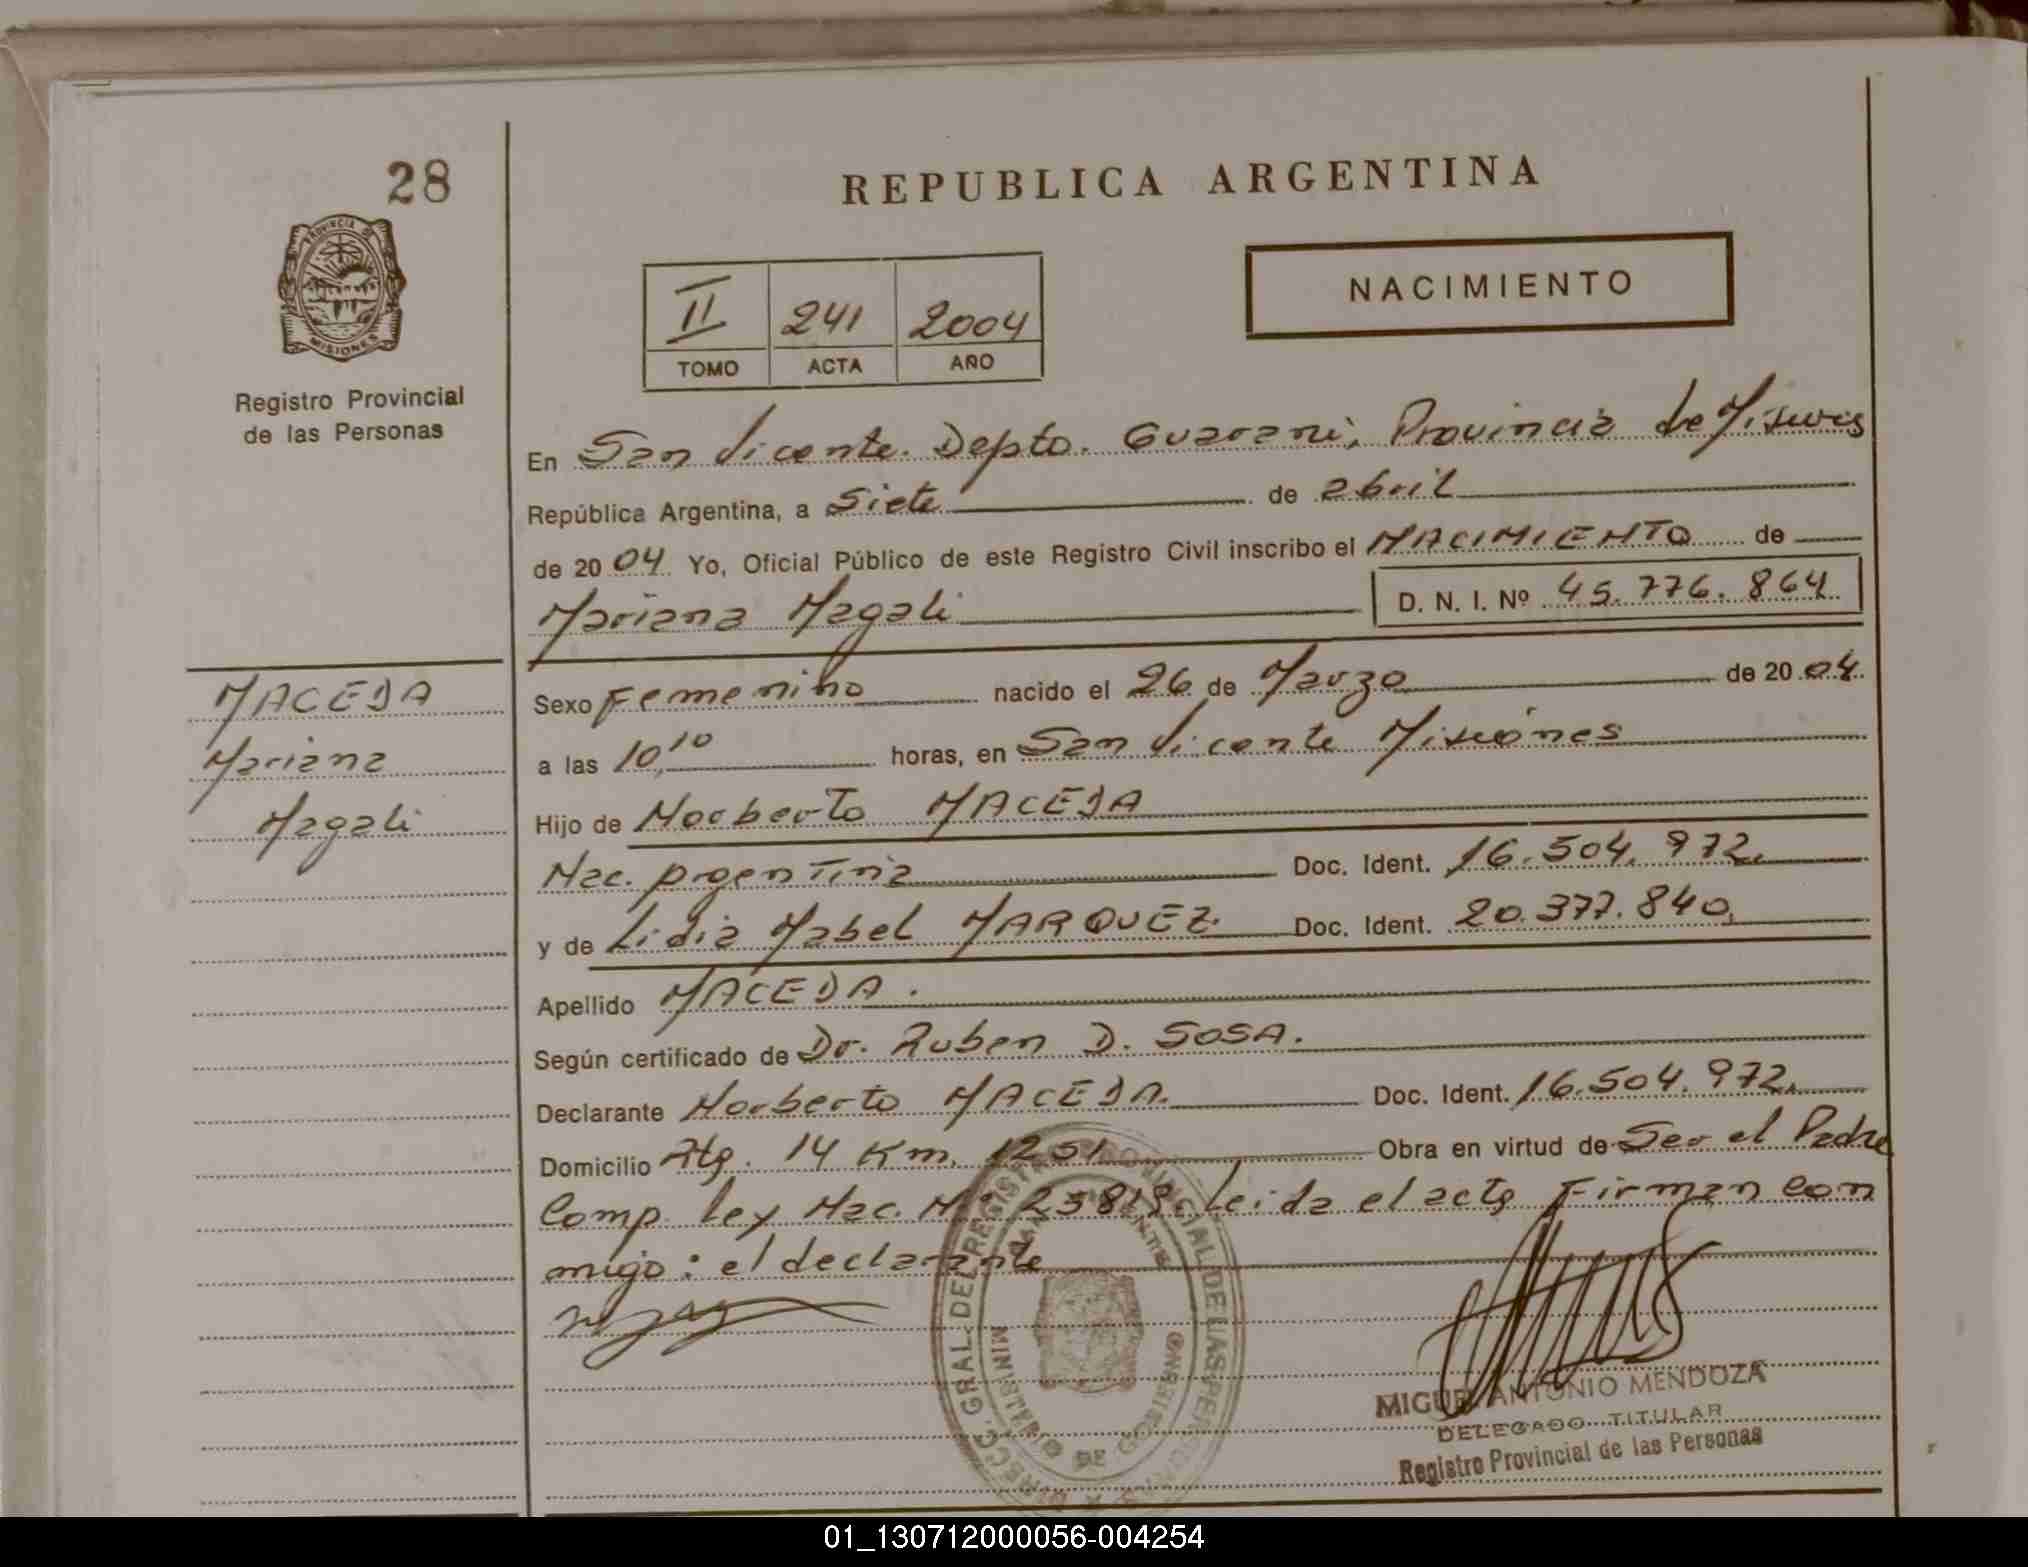 28
REPUBLICA ARGENTINA
PROVINCIA DE
MISIONES
Registro Provincial
de las Personas
II 241 2004
TOMO ACTA AÑO
NACIMIENTO
En San Vicente. Depto. Guarani, Provincia de Misiones
República Argentina, a Siete de abril
de 2004 Yo, Oficial Público de este Registro Civil inscribo el NACIMIENTO de
Mariana Magali D. N. I. Nº 45.776.864
MACEDA
Mariana
Magali
Sexo Femenino nacido el 26 de Marzo de 2004
a las 10,10 horas, en San Vicente Misiones
Hijo de Norberto MACEDA
Nac. Argentina Doc. Ident. 16.504.972
y de Lidia Mabel MARQUEZ. Doc. Ident. 20.377.840
Apellido MACEDA.
Según certificado de Dr. Ruben D. SOSA.
Declarante Norberto MACEDA. Doc. Ident. 16.504.972
Domicilio Rta. 14 Km. 1251 Obra en virtud de Ser el Padre
Comp. Ley Nac. Nº 25819. Leida el acta Firman con
migo: el declarante
DIRECC. GRAL. DEL REGISTRO PROVINCIAL DE LAS PERSONAS
MINISTERIO DE GOBIERNO
MIGUEL ANTONIO MENDOZA
DELEGADO TITULAR
Registro Provincial de las Personas
01_130712000056-004254